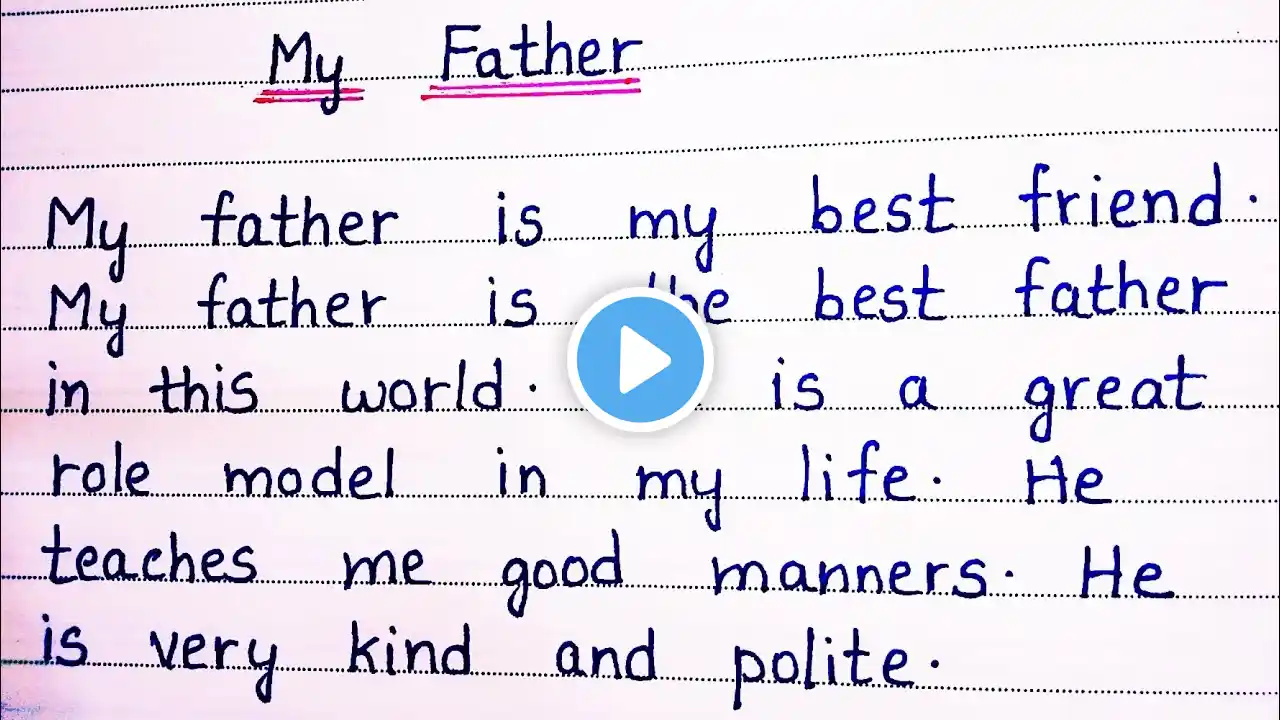 My Father
My father is my best friend.
My father is the best father
in this world. is a great
role model in my life. He
teaches me good manners. He
is very kind and polite.